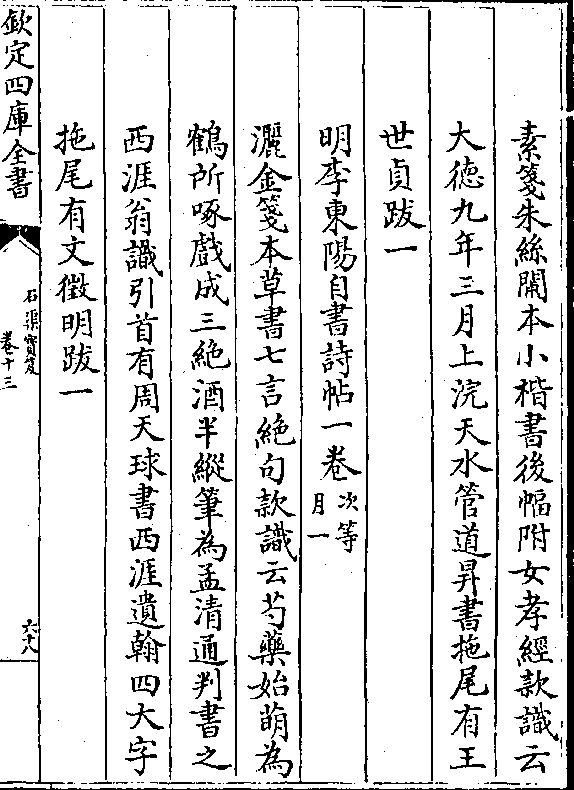 素箋朱絲闌本小楷書後幅附女孝經款識云
大德九年三月上浣天水管道昇書拖尾有王
世貞跋一
明李東陽自書詩帖一卷次等月一
灑金箋本草書七言絶句款識云芍藥始萌為
鶴所啄戲成三絶酒半縱筆為孟清通判書之
西涯翁識引首有周天球書西涯遺翰四大字
拖尾有文徵明跋一
欽定四庫全書
石渠寶笈
卷十三
六十八